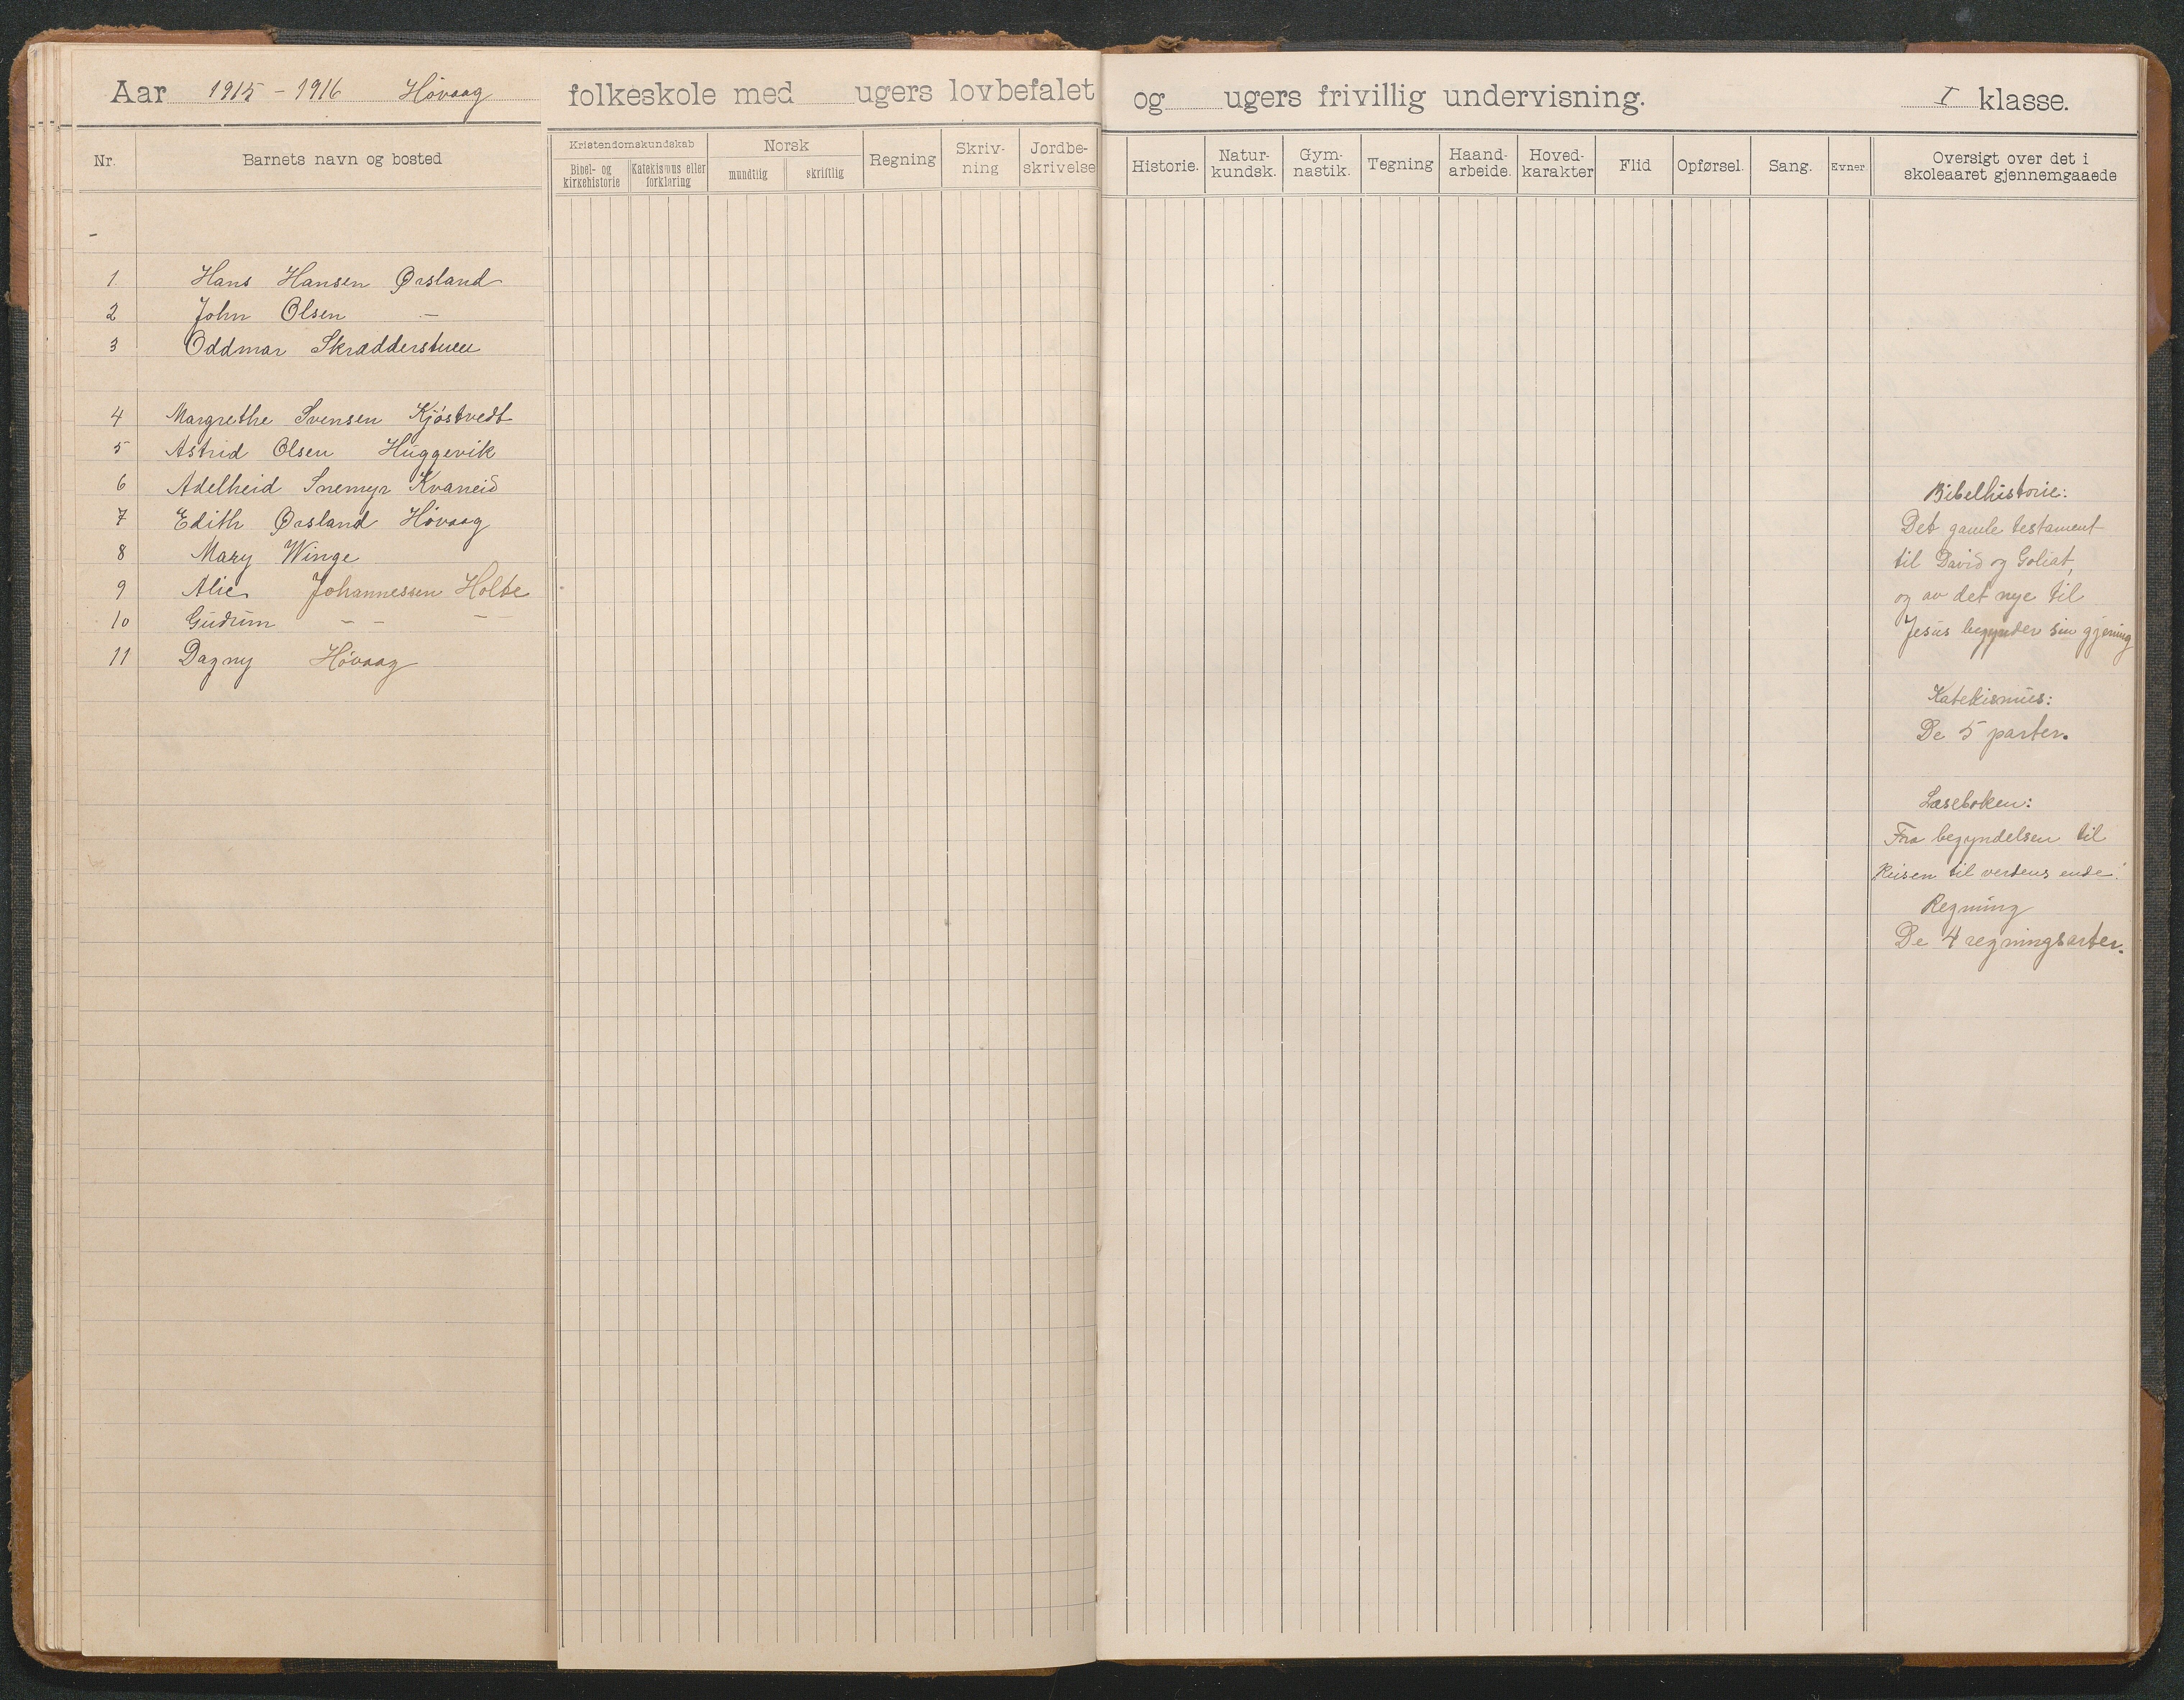 Aar 1915 - 1916 Høvaag folkeskole med ugers lovbefalet og ugers frivillig undervisning. I klasse.
Nr. Barnets navn og bosted Kristendomskundskab Bibel- og kirkehistorie Katekismus eller forklaring Norsk mundtlig skriftlig Regning Skriv-ning Jordbe-skrivelse Historie. Natur-kundsk. Gym-nastik. Tegning Haand-arbeide. Hoved-karakter Flid Opførsel. Sang. Evner Oversigt over det i skoleaaret gjennemgaaede
-
1 Hans Hansen Ørsland
2 John Olsen -
3 Oddmar Skrædderstuen
4 Margrethe Svensen Kjøstvedt
5 Astrid Olsen Huggevik
6 Adelheid Snemyr Kvaneid
7 Edith Ørsland Høvaag
8 Mary Winge
9 Alie Johannessen Holte
10 Gudrun - - - -
11 Dagny Høvaag
Bibelhistorie:
Det gamle testament
til David og Goliat,
og av det nye til
Jesus begynder sin gjerning
Katekismus:
De 5 parter.
Læseboken:
Fra begyndelsen til
Reisen til verdens ende.
Regning
De 4 regningsarter.